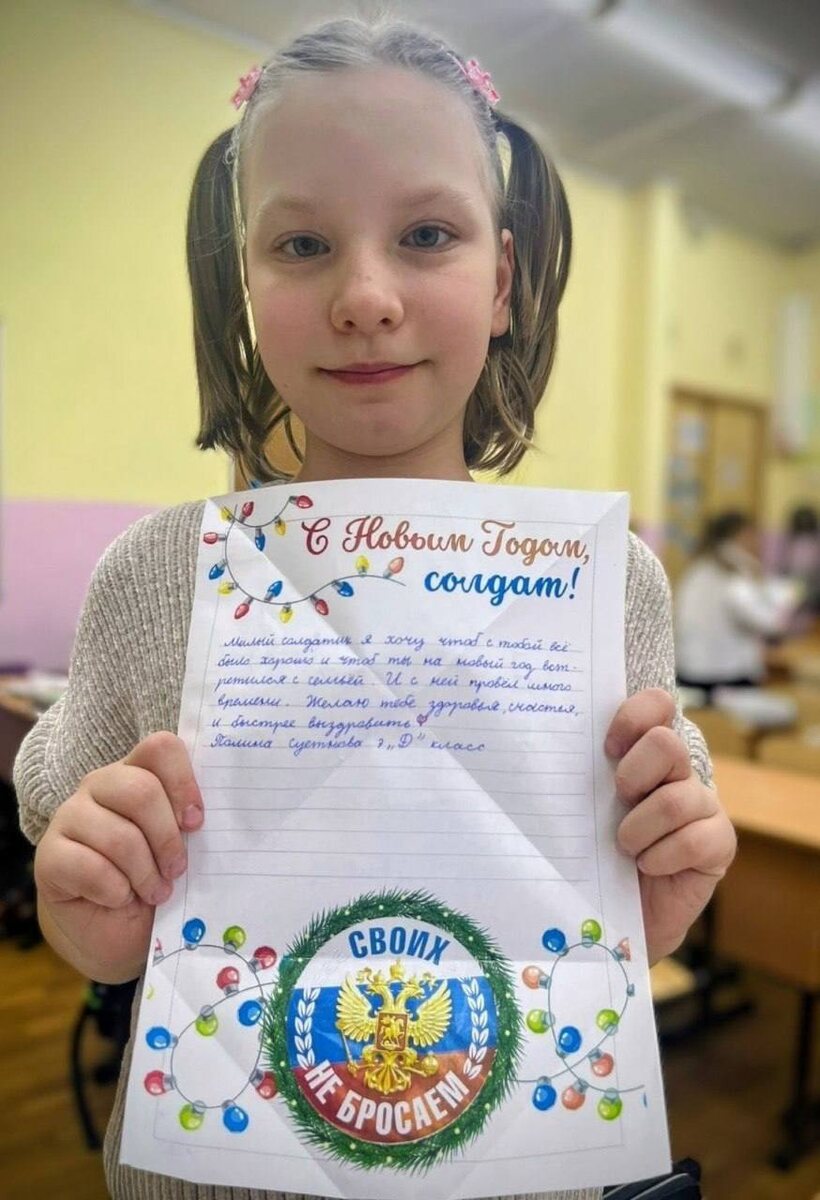 С Новым Годом,
солдат!
Милый солдатик я хочу чтоб с тобой всё
было хорошо и чтоб ты на новый год вст-
ретился с семьёй. И с ней провёл много
времени. Желаю тебе здоровья, счастья,
и быстрее выздравить
Полина 3 „Д" класс
СВОИХ
НЕ БРОСАЕМ